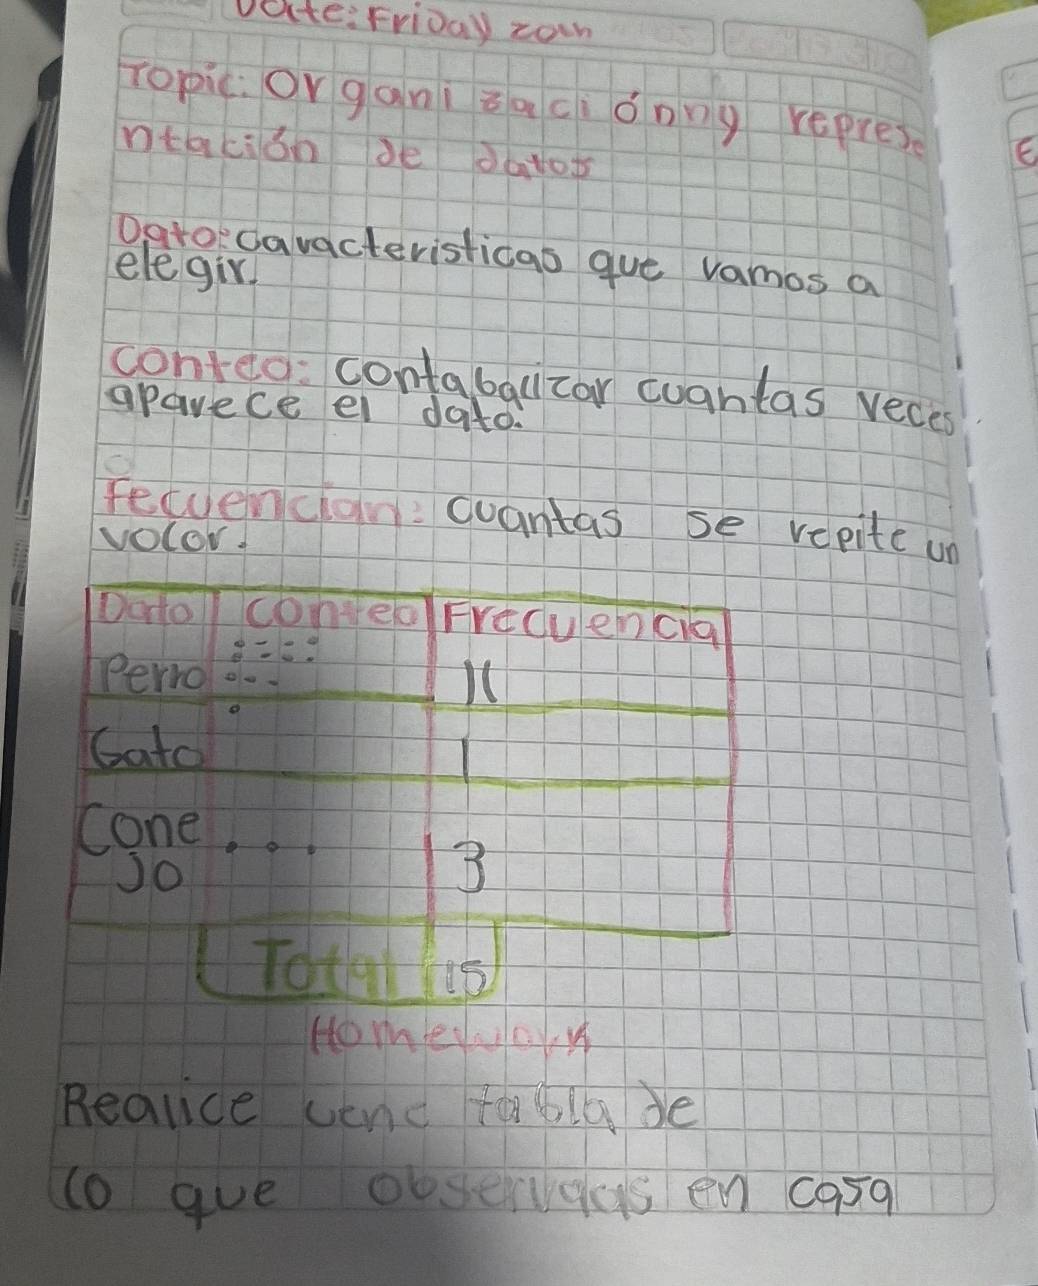 Date: Friday
Topic: Organizaciónny represe
ntación de datos
Dato: caracteristicas que vamos a
elegir.
conteo: contabalizar cuantas veces
aparece el dato.
Fecuencian: cuantas se repite un
valor.
Dato conteo Frecuencia
Perro 11
Gato 1
Cone . . . 3
jo
Total 15
Homework
Realice una tabla de
lo que observaas en casa